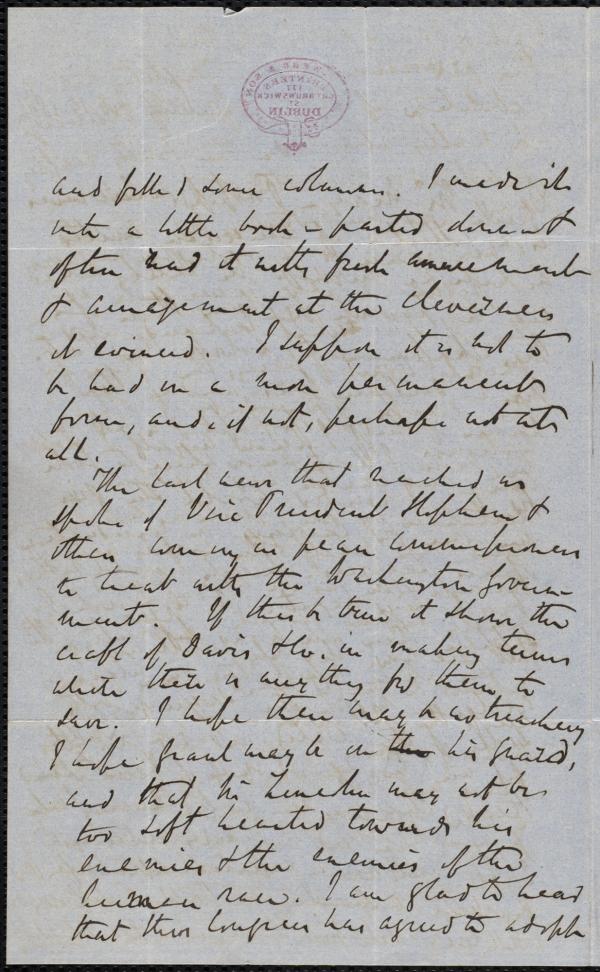 & SON
PRINTERS
177
GT BRUNSWICK
ST
DUBLIN
and filled some columns. I made it
into a little book – pasted down &
often read it with fresh amusement
& amazement at the cleverness
it evinced. I suppose it is not to
be had in a more permanent
form, and, if not, perhaps not at
all.
The last news that reached us
spoke of Vice President Stephens &
others coming as peace commissioners
to treat with the Washington Govern-
ment. If this be true it shows the
craft of Davis & Co. in making terms
while there is anything for them to
save. I hope there may be no treachery
I hope Grant may be on his guard,
and that Mr Lincoln may not be
too soft hearted towards his
enemies & the enemies of the
human race. I am glad to head
that this Congress has agreed to adopt